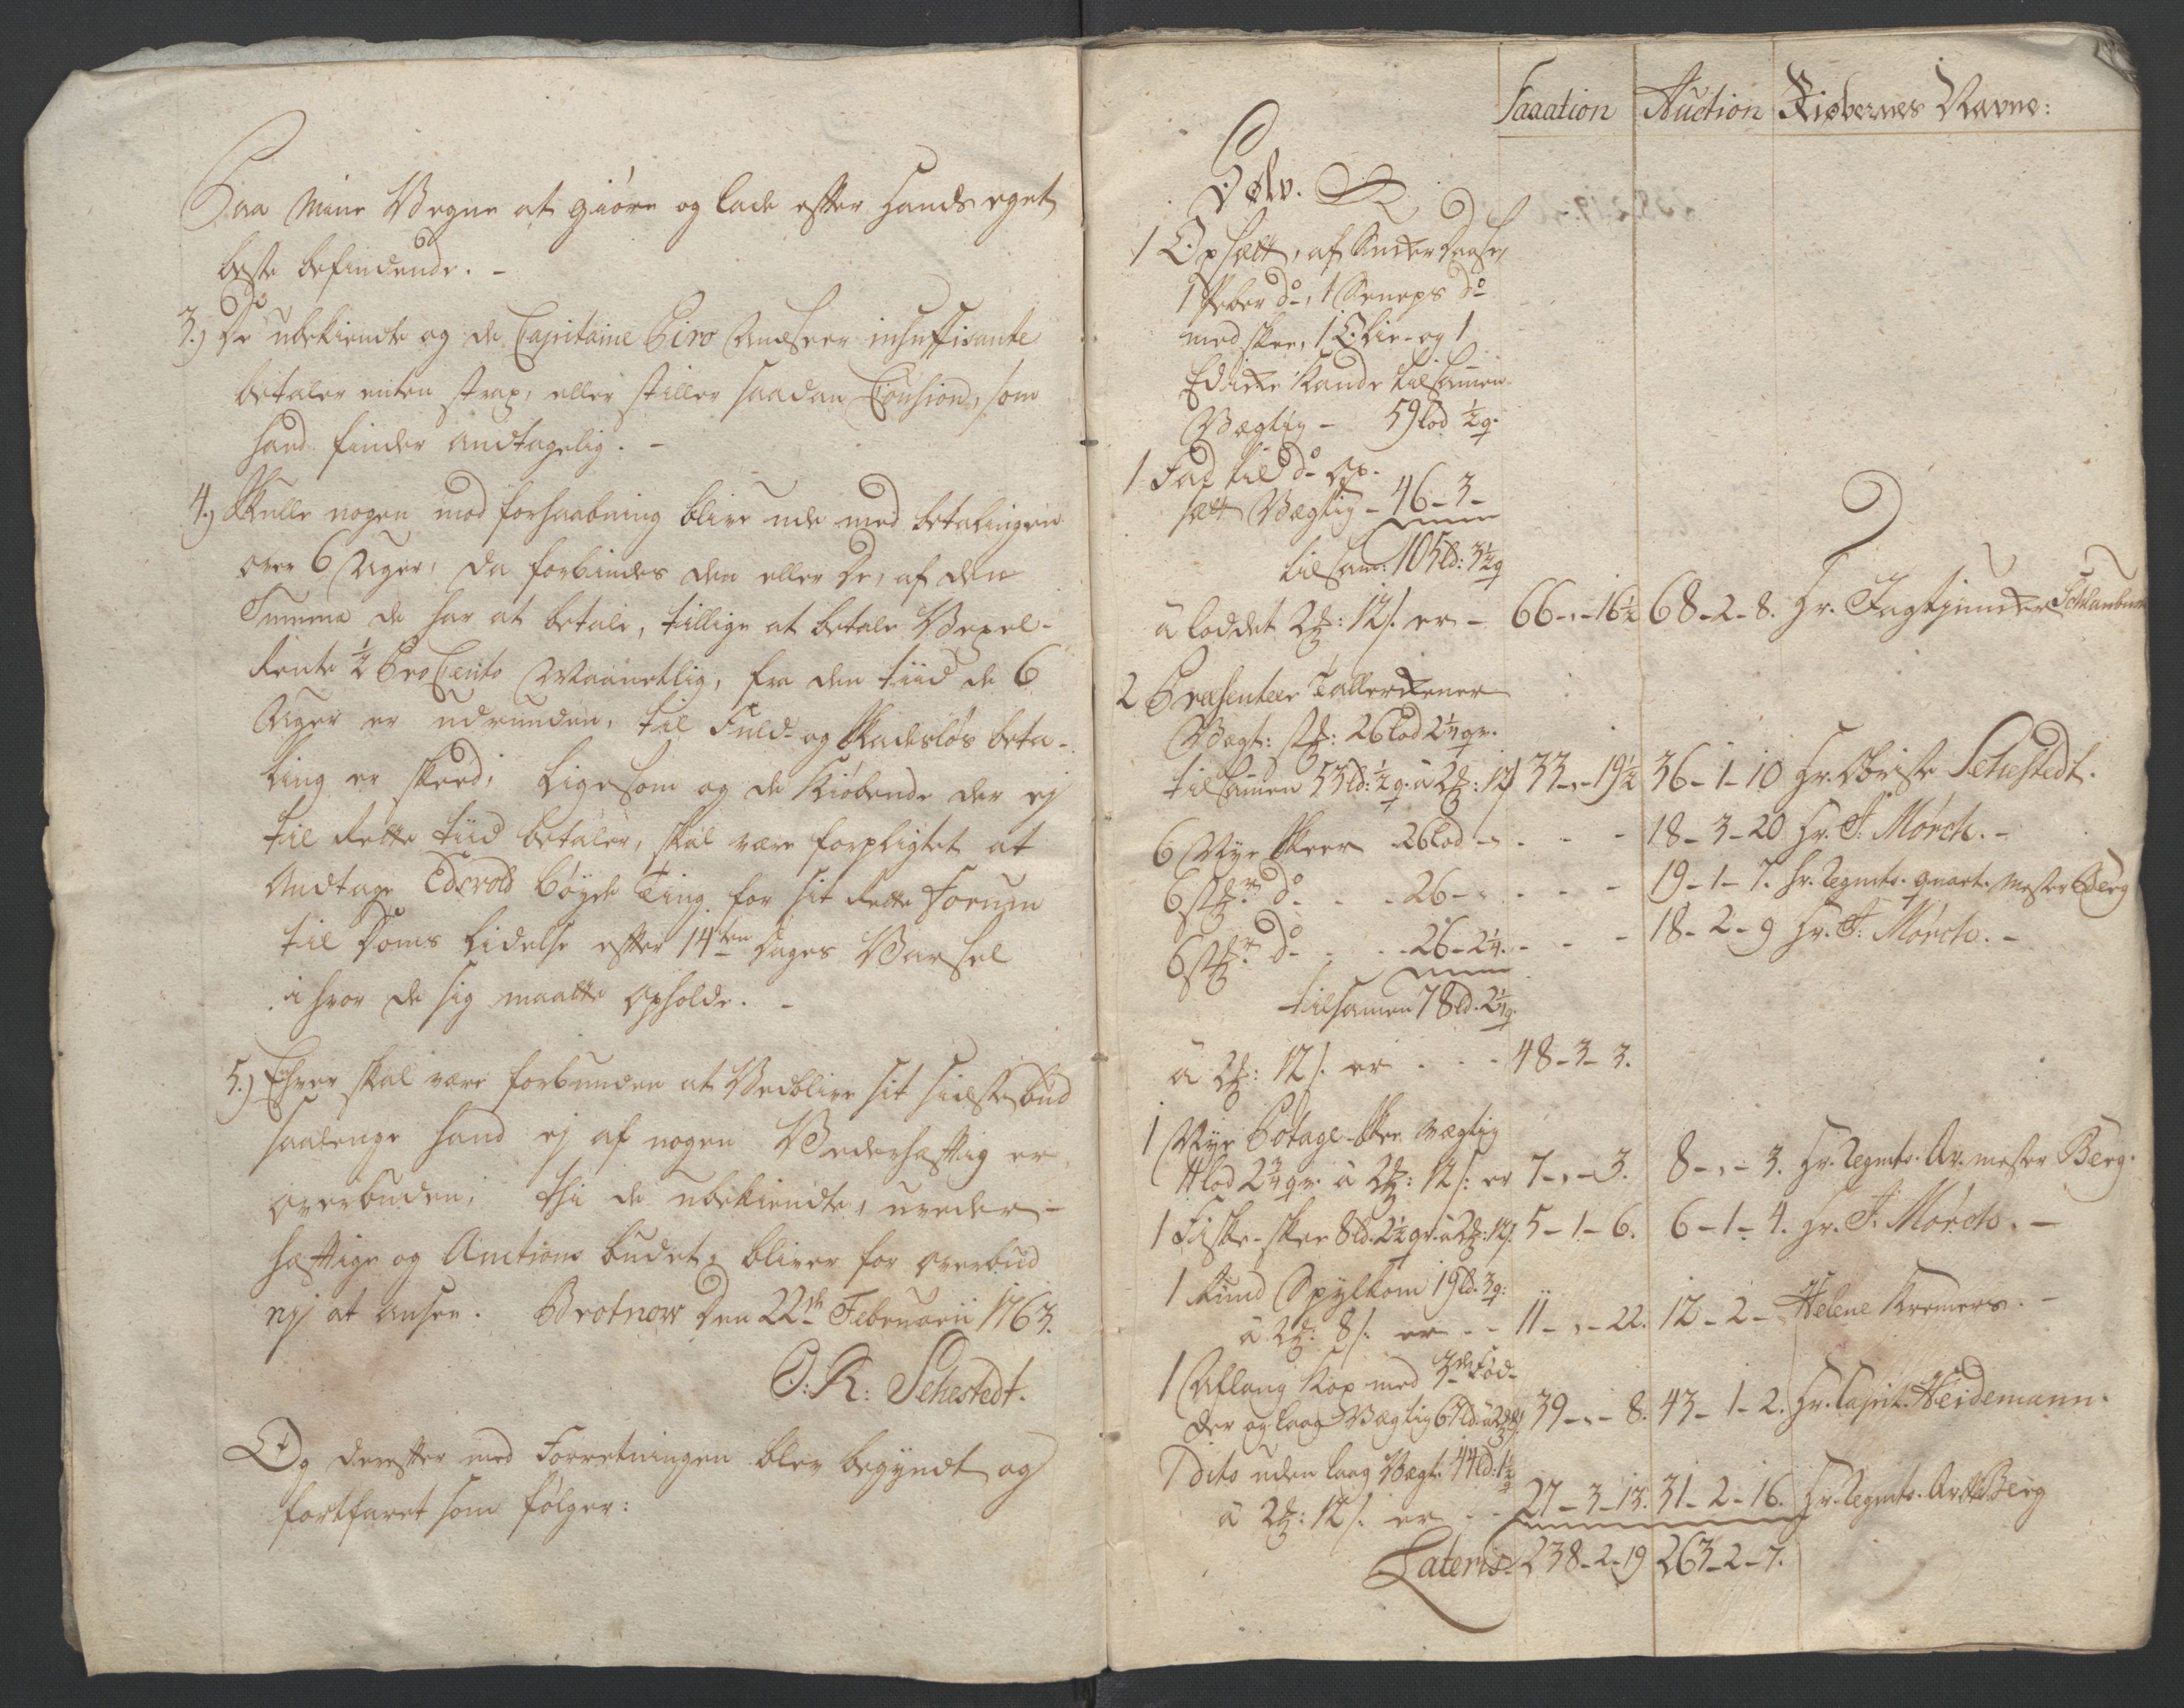 Paa mine Vegne at giøre og lade efter hands eget
beste befindende. -
3.) De ubekiendte og de Capitaine Biro Andseer insuffisante
betaler enten strax, eller stiller saadan Caution, som
hand finder andtagelig. -
4.) Skulle nogen mod forhaabning blive ude med betalingen
over 6 Uger, da forbindes den eller de, af den
Summa de har at betale, tillige at betale Vexel-
Rente ½ ProCento Maanetlig, fra den tiid de 6
Uger er udrunden, til Fuld- og Skadesløs beta-
ling er skeed; Ligesom og de Kiøbende der ej
til rette tiid betaler, skal være forpligtet at
Andtage Edsvold Bøyde Ting for sit rette Forum
til Doms Lidelse efter 14ten Dages Varsel
i hvor de sig maatte opholde. -
5.) Enhver skal være forbunden at Vedblive sit sidste bud
saalenge hand ej af nogen Vederhæftig er
overbuden; thi de ubekiendte, uveder-
hæftige og Auctions budet, bliver for overbud
nej at ansee. Brotnow den 22de Februarii 1763.
O: R: Sehestedt.
Og derefter med Forretningen blev begyndt og
fortfaret som følger:
Taxation Auction Kiøbernes Navne:
Sølv.
1 Opsatt, af Sukker Daase,
1 Peber do, 1 Seneps do
med skee, 1 Olie- og 1
Edikke Kande tilsamen
Vægtig - 59 lod ½ q.
1 Fad til do Op-
satt Vægtig - 46 - 3 -
tilsam: 105 ld: 3½ q
à loddet 2 : 12 s. er - 66 - " - 16½ 68 - 2 - 8. Hr. Jagtjunker
2 Præsenteer Tallerkener
Vægt: st: 26 lod 2¼ qr.
tilsamen 53 ld: ½ q. à 2 : 12 s 33 - " - 19½ 36 - 1 - 10 Hr. Obriste Sehestedt.
6 Nye Skeer - 26 lod - " - - 18 - 3 - 20 Hr. J: Mørch. -
6 st do - - 26 - " - - 19 - 1 - 7. Hr. Regmts. quart. Mester Berg
6 st do - - 26 - 2¼. - - 18 - 2 - 9 Hr. J: Mørch. -
tilsamen 78 ld. 2¼ q.
à 2 : 12 s. er - - - 48 - 3 - 3.
1 Nye Potage-Skee Vægtig
11 lod 2¼ qr. à 2 : 12 s: er 7 - " - 3. 8 - " - 3. Hr. Regmts. Qv. mester Berg.
1 Fiske-skee 8 ld. 2½ qr. à 2 : 12 s. 5 - 1 - 6. 6 - 1 - 4. Hr. J. Mørch. -
1 Rund Spylkom 19 ld. 3 q:
à 2 : 8 s. er - - 11 - " - 22. 12 - 2 - Helene Kremers. -
1 Aflang Kop med 3de Fød-
der og laag Vægtig 67 ld. 39 - " - 8. 43 - 1 - 2. Hr. Capit. Heidemann.
1 dito uden laag Vægt. 44 ld: 1½ q
à 2 : 12 s. er - - 27 - 3 - 13. 31 - 2 - 16. Hr. Regmts. Berg
Lateris 238 - 2 - 19 263 - 2 - 7.